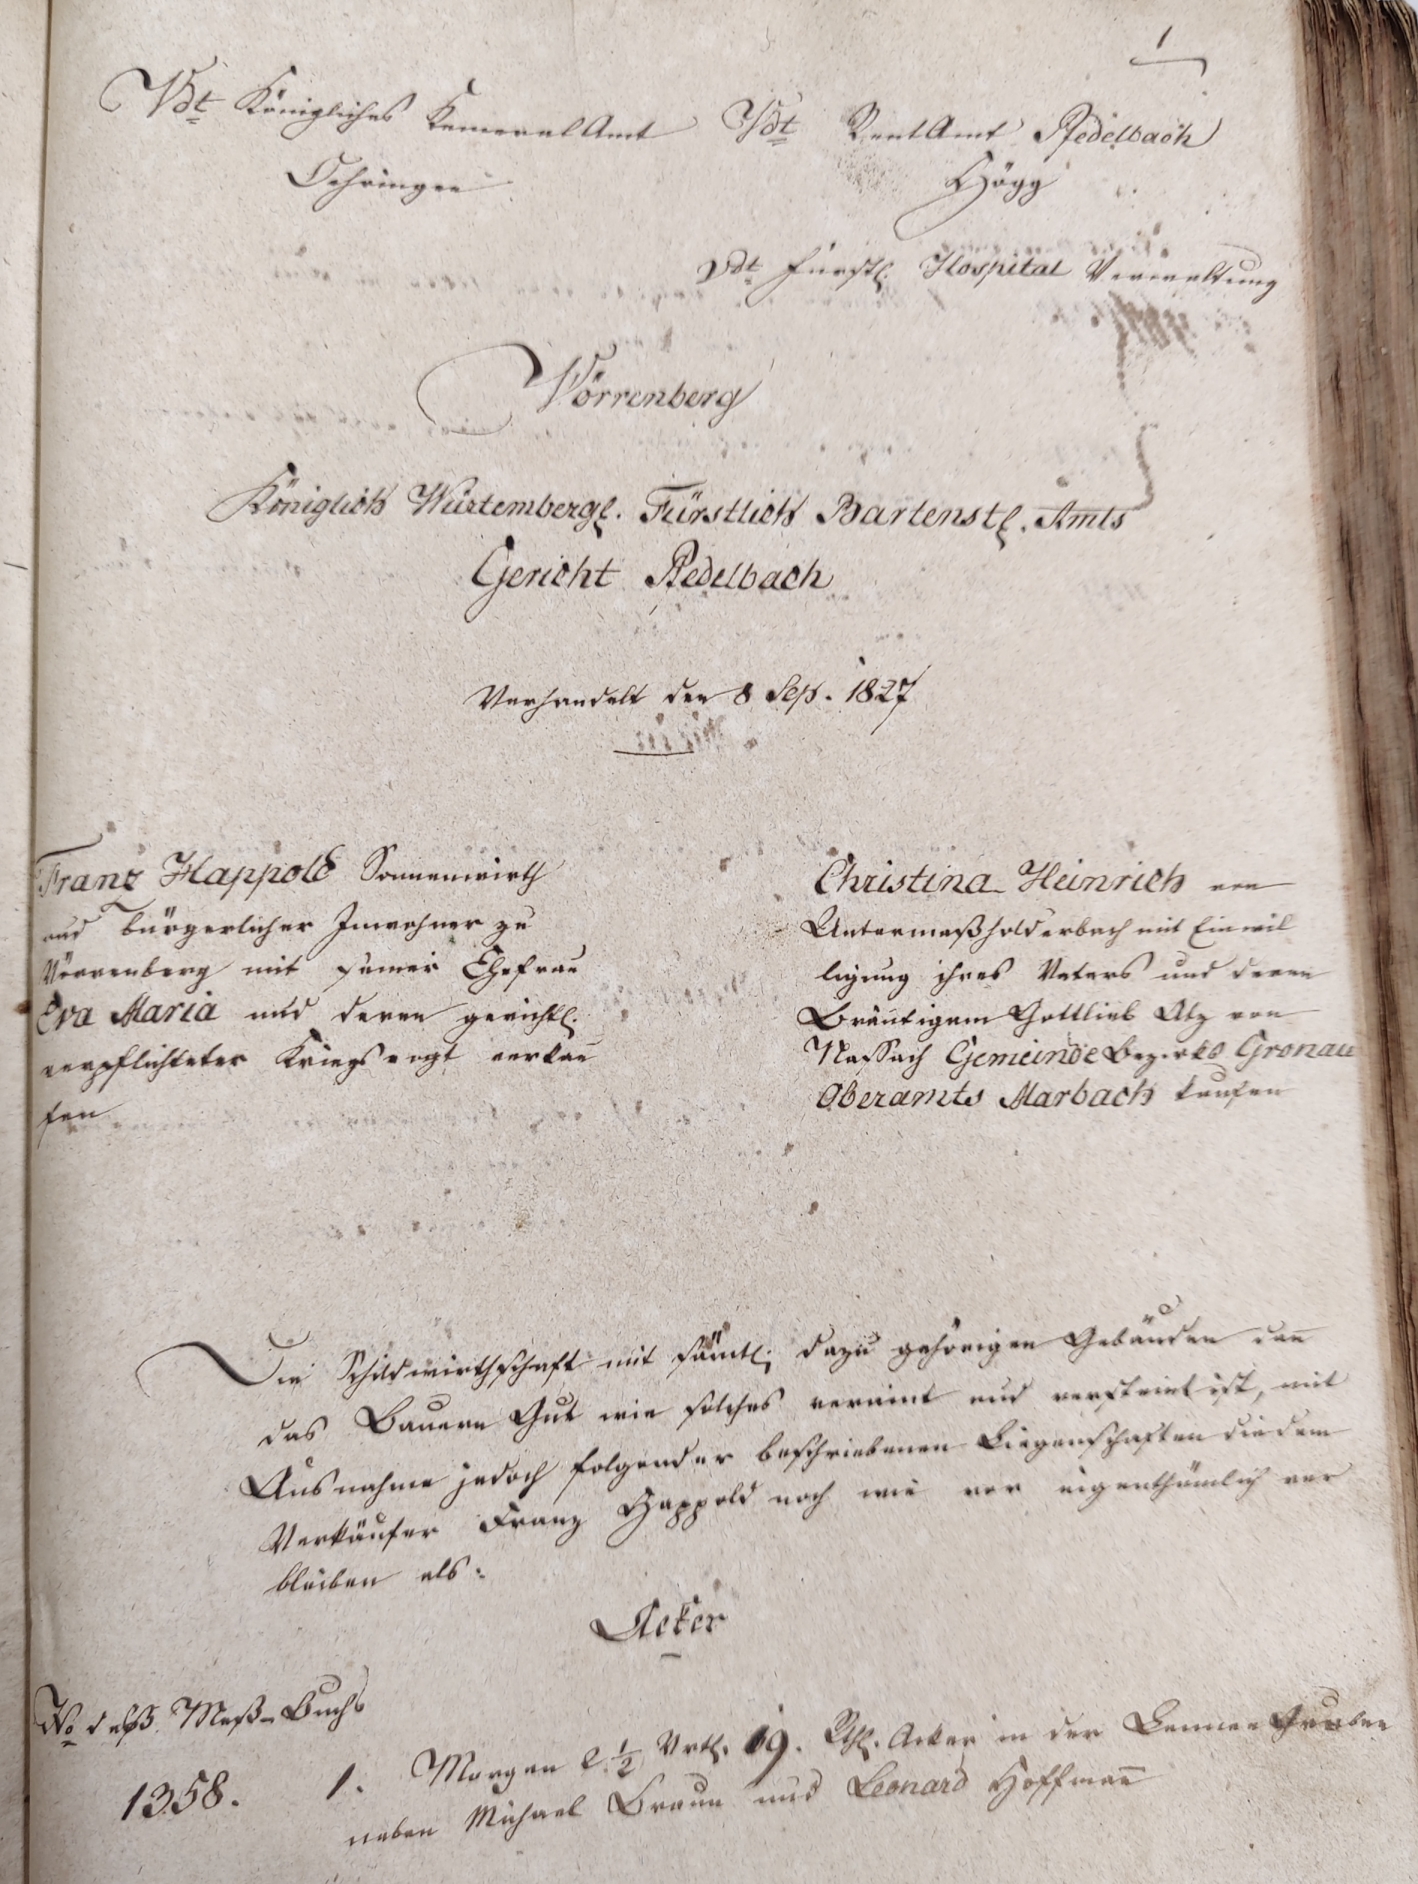 1
Vdt Königliches KameralAmt
Oehringen
Vdt RentAmt Pfedelbach
Högg
Vdt Fürstl. Hospital Verwaltung
Wörrenberg
Königlich Würtembergl. Fürstlich Bartenstl. Amts
Gericht Pfedelbach
Verhandelt den 8 Sep. 1827
Franz Happold Sonnenwirth
und bürgerlicher Innwohner zu
Wörrenberg mit seiner Ehefrau
Eva Maria und deren gerichtl.
verpflichteter Kriegsvogt verkau
fen
Christina Heinrich von
Untermaßholderbach mit Einwil
ligung ihres Vaters und deren
Bräutigam Gottlieb Atz von
Nassach Gemeinde Bezirks Gronau
Oberamts Marbach kaufen
Die Schildwirthschaft mit sämtl. dazu gehörigen Gebäuden dann
das Bauern Gut wie solches vereint und versteint ist, mit
Ausnahme jedoch folgender beschriebenen Liegenschaften die dem
Verkäufer Franz Happold noch wie vor eigenthümlich ver
bleiben als:
Acker
No deß Meß-Buchs
1358.
1. Morgen 2 1/2 Vrtl. 19. Rth. Acker in der Gruben
neben Michael Braun und Leonard Hoffmann